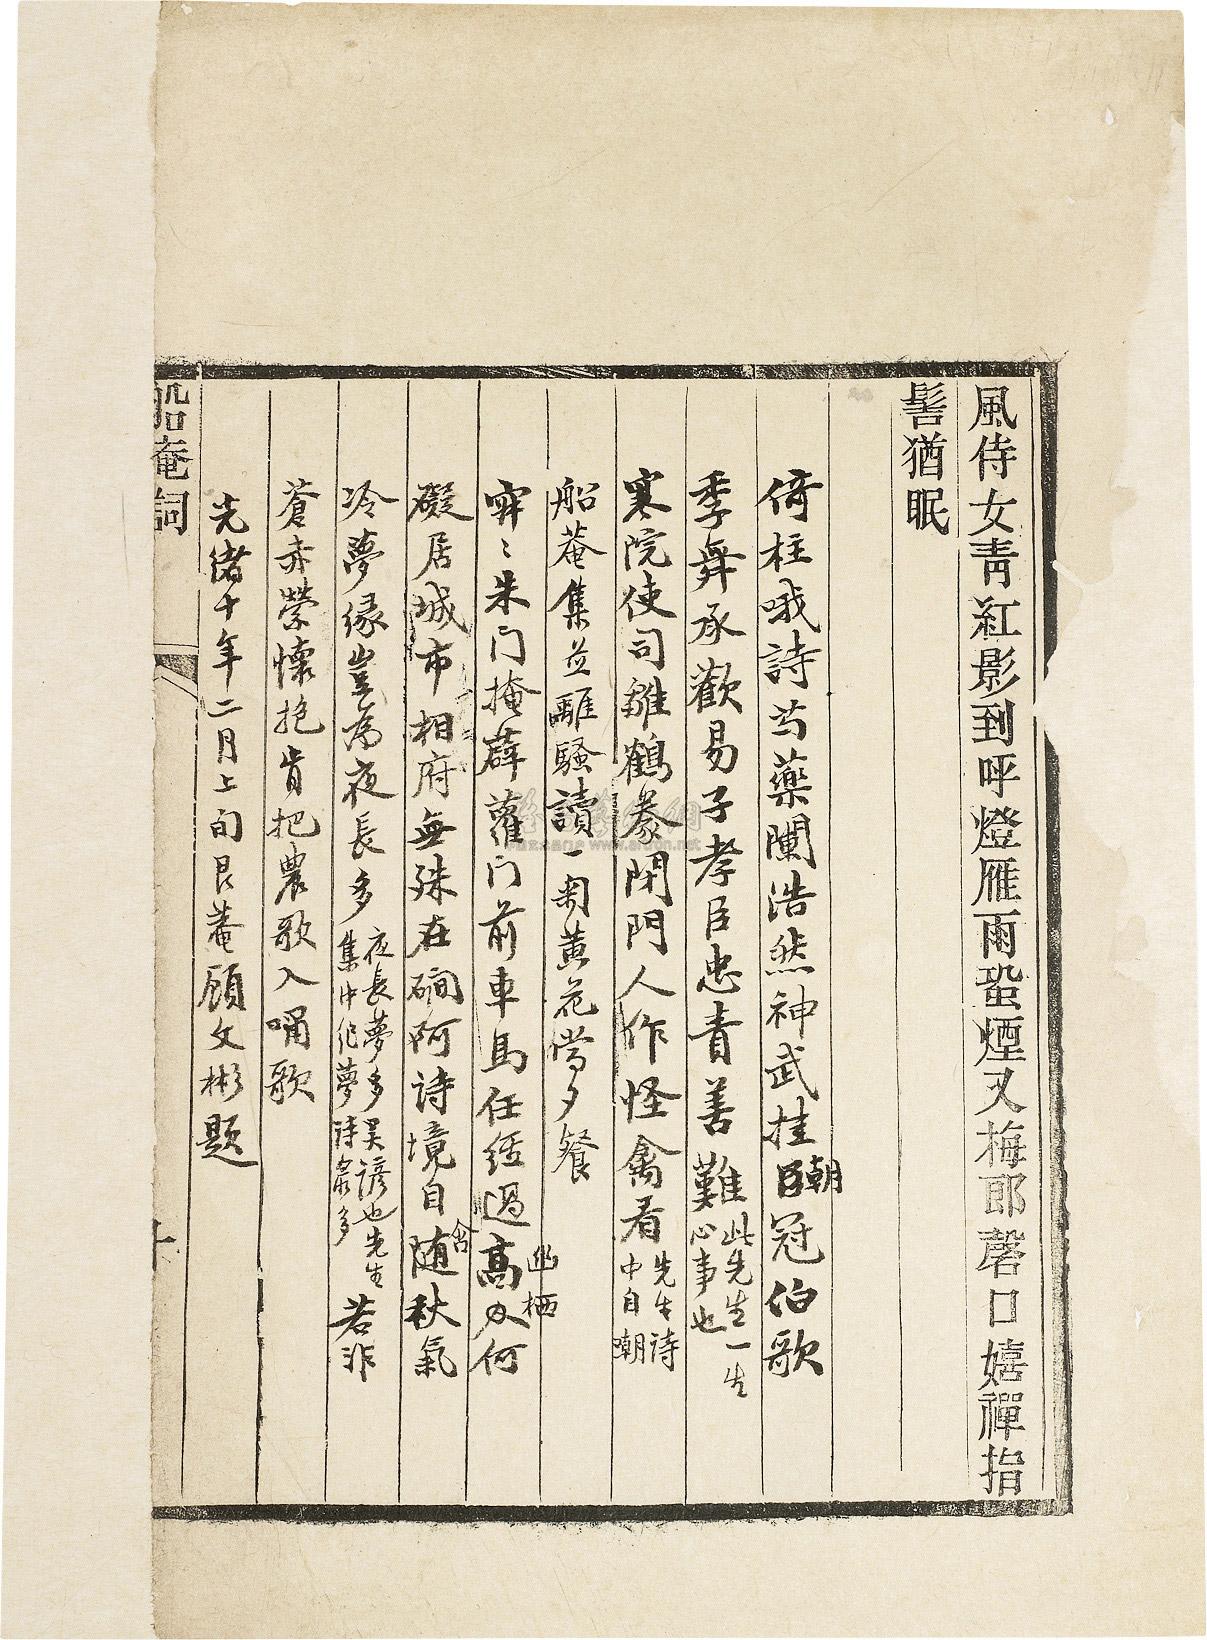 風侍女青紅影到呼燈雁雨蛩煙又梅郎磬口嬉禪指
髻猶眠
倚柱哦詩芍藥闌浩然神武挂朝冠伯歌
季舞承歡易子孝臣忠責善難此先生一生心事也
寒院使司雛鶴豢閉門人作怪禽看先生詩中自嘲
船菴集並離騷讀一匊黃花當夕餐
穽〻朱门掩薜蘿门前車馬任經過幽栖高及何
礙居城市相府無殊在磵阿诗境自含随秋氣
冷夢缘豈為夜長多夜長夢多吴諺也先生集中纪夢诗最多若非
蒼赤縈懷抱肯把農歌入嘯歌
光緒十年二月上旬艮菴顧文彬題
船庵詞
十